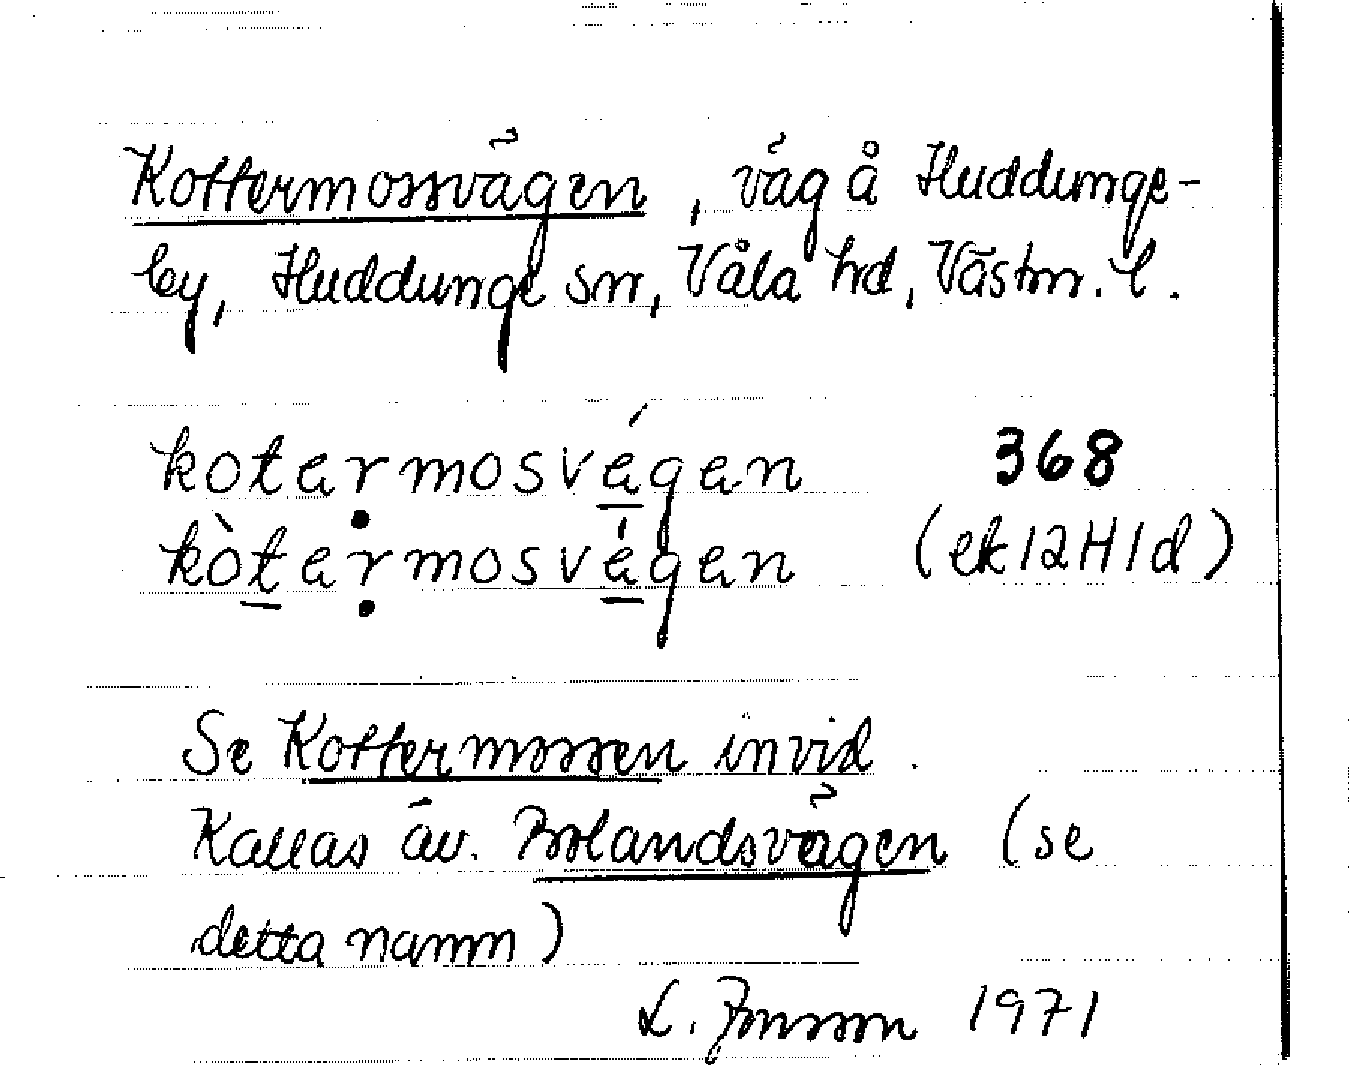 Kottermossvägen, väg å Huddunge-
by, Huddunge sn, Våla hd, Västm. l.
kotermosvägen 368
kòtermosvägen (ek 12H1d)
Se Kottermossen invid.
Kallas äv. Brolandsvägen (se
detta namn)
L. Jonsson 1971